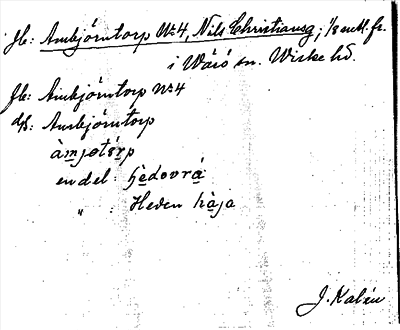 Jb: Ambjörntorp No 4, Nils Christiansg; 1/8 mtl. fr.
i Wärö sn. Wiske hd.
Jb: Ambjörntorp No 4
df: Ambjörntorp
àmpətórp
en del: hèdovrá
" : Heden hàja
J. Kalén